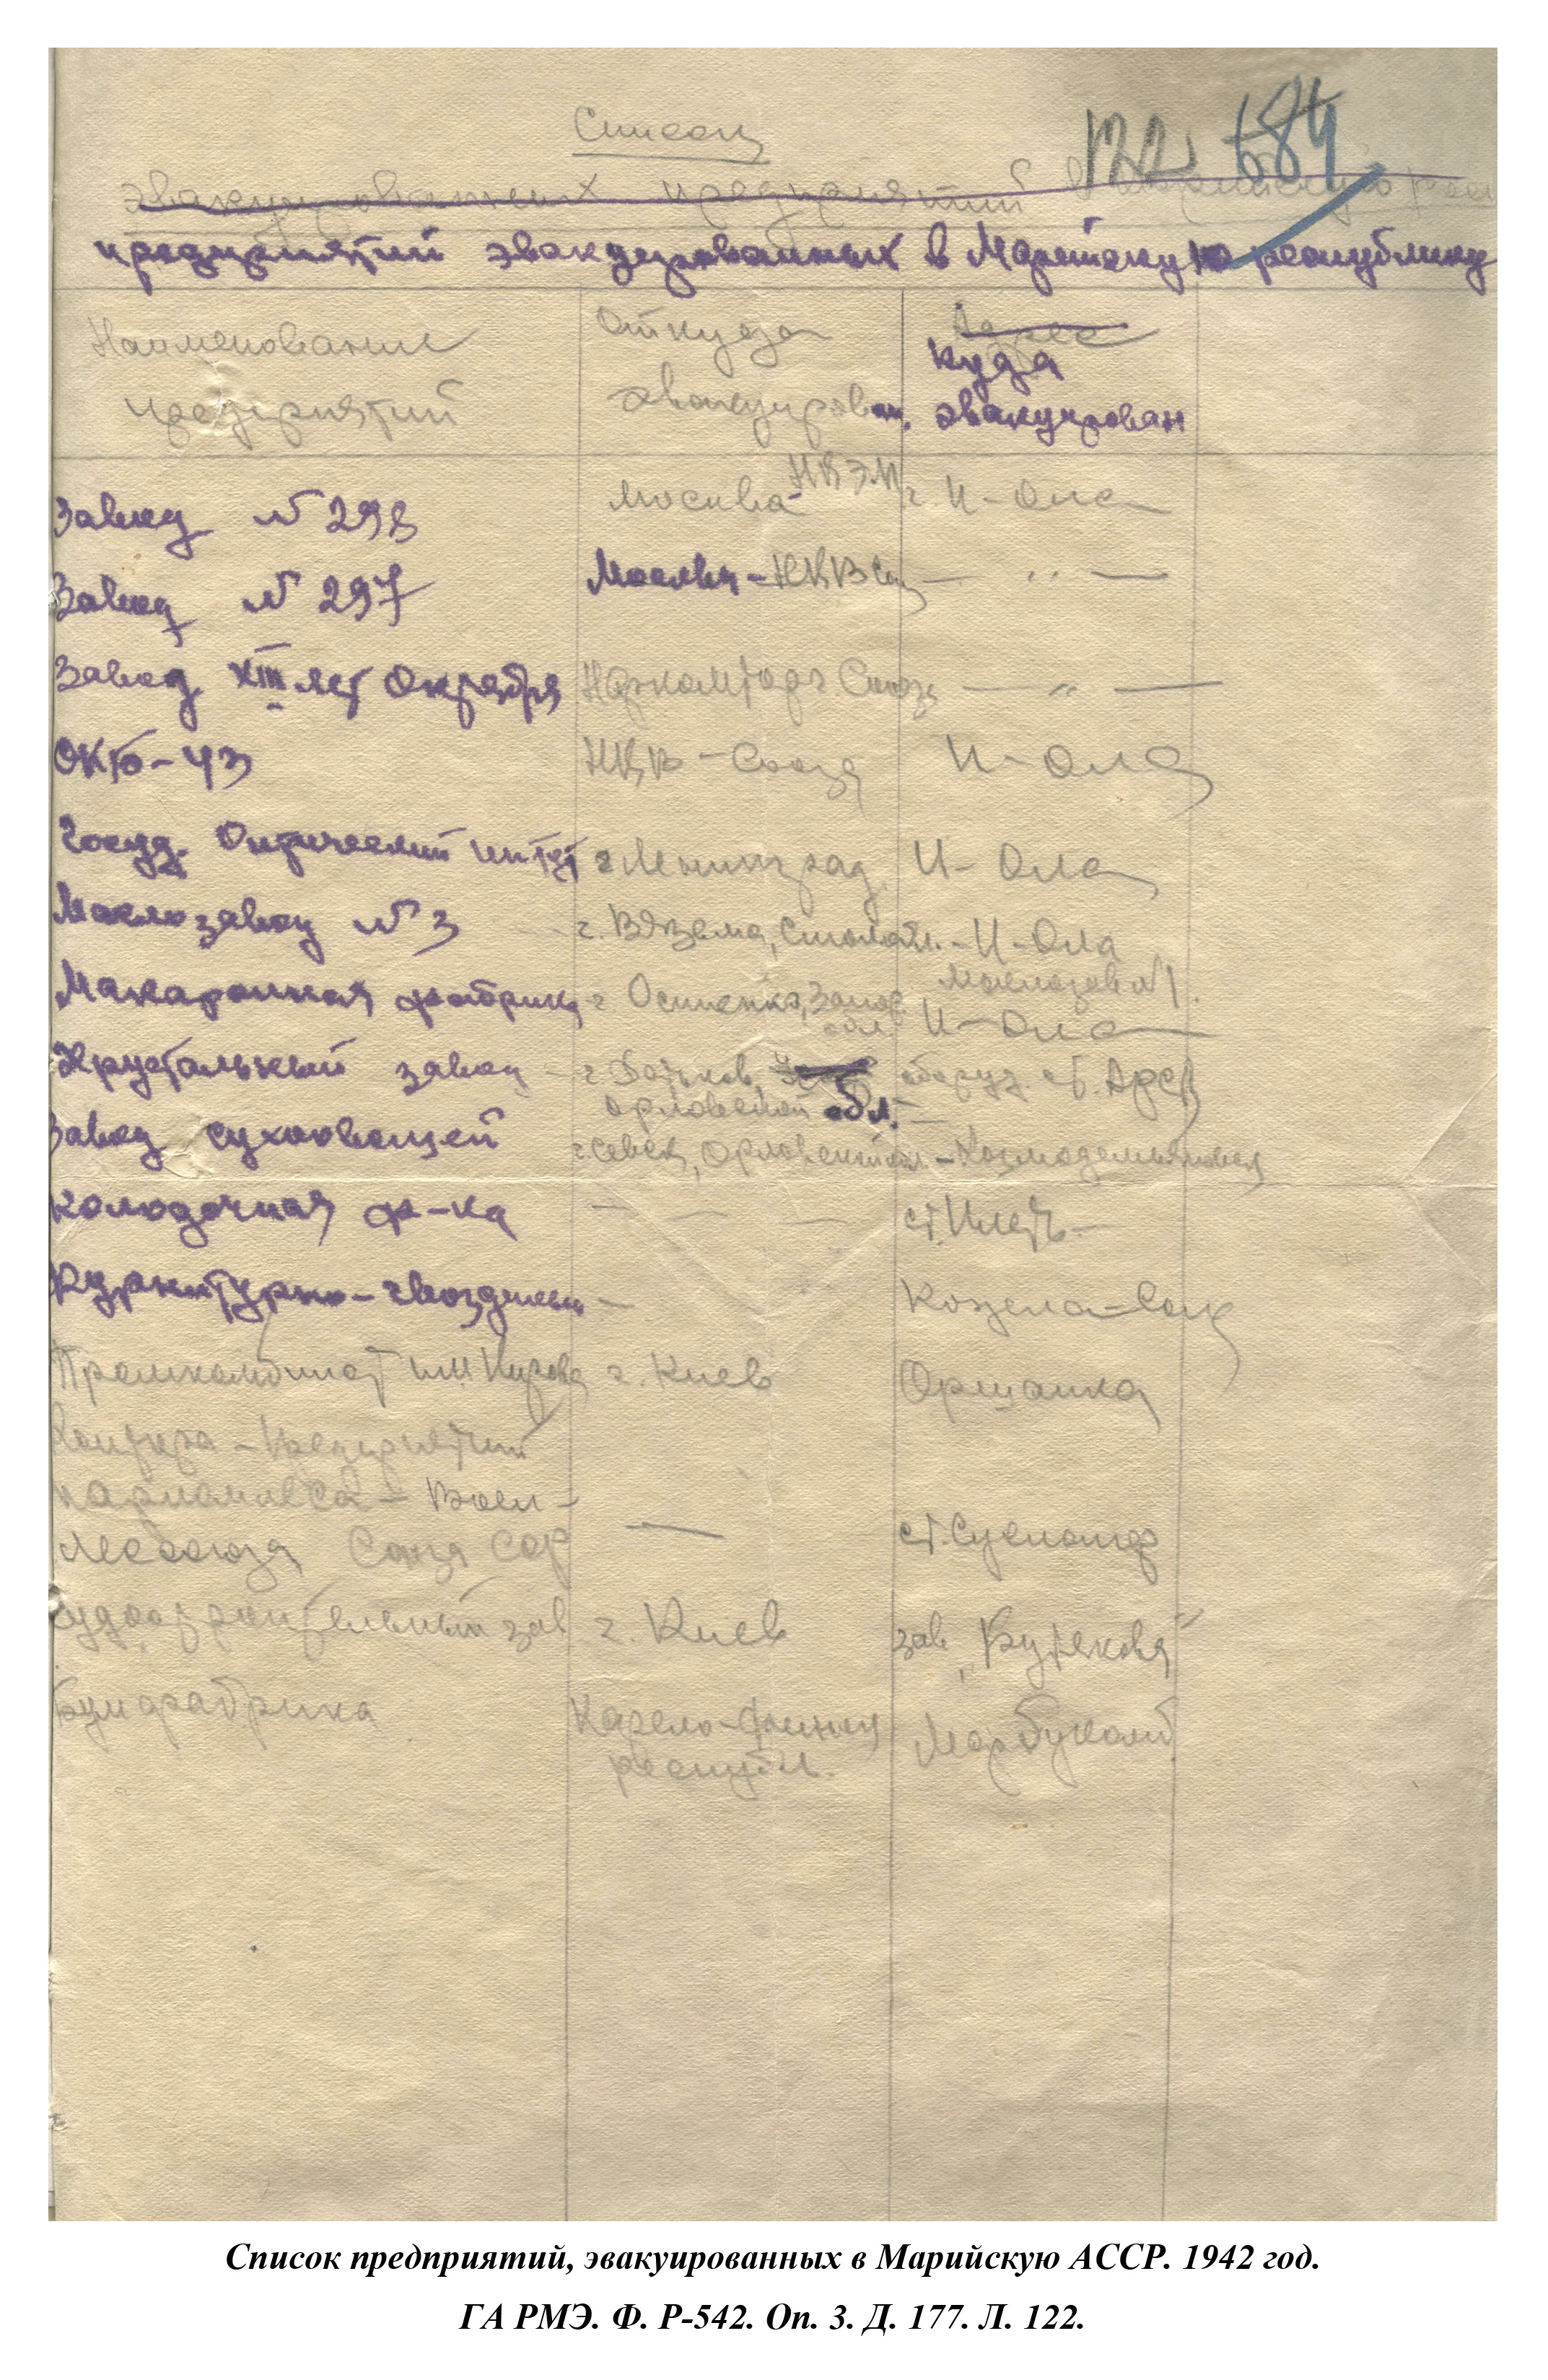 Список
122 684
эвакуированных предприятий в Марийскую респ
предприятий эвакуированных в Марийскую республику
Наименование предприятий
Откуда эвакуирован.
Адрес
Куда эвакуирован
Завод № 298 Москва - НКЭП г. И-Ола
Завод № 297 Москва - НКВ Союз — " —
Завод XIII лет Октября Наркомторг Союза — " —
ОКБ-43 НКВ - Союза И-Ола
Госуд. Оптический инт-т г. Ленинград И-Ола
Маслозавод № 3 г. Вязьма, Смол. обл. - И-Ола
Маслозав. № 1.
Макаронная фабрика г. Осипенко, Запор. обл. И-Ола
Хрустальный завод - г. Дятьков, Орловской обл. - оборуд. об.
Завод сухоовощей г. Севск, Орловский обл - Козмодемьянск
Колодочная ф-ка — — — ст. Илеть -
Фурнитурно-гвоздильн — Кожела-Сола
Промкомбинат им. Кирова г. Киев Оршанка
Контора - предприятий
наркомлеса - Воен -
Лесосоюза Союза ССР — ст. Суслонгер
Судостроительный зав г. Киев зав „Бутякова"
Бумфабрика Карело-Финск республ. Марбумкомб
Список предприятий, эвакуированных в Марийскую АССР. 1942 год.
ГА РМЭ. Ф. Р-542. Оп. 3. Д. 177. Л. 122.